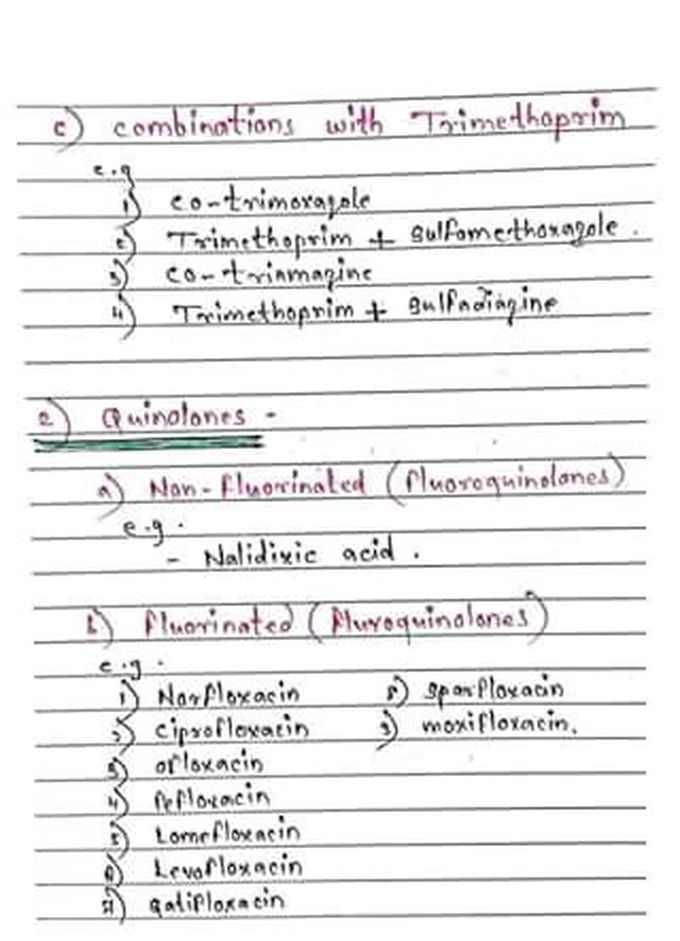 c) combinations with Trimethoprim
e.g
1) co-trimoxazole
2) Trimethoprim + Sulfamethoxazole.
3) co-triamazine
4) Trimethoprim + Sulfadiazine
2) Quinolones -
a) Non-fluorinated (fluoroquinolones)
e.g.
- Nalidixic acid.
b) fluorinated (fluroquinolones)
e.g.
1) Norfloxacin 8) sparfloxacin
2) ciprofloxacin 9) moxifloxacin.
3) ofloxacin
4) Pefloxacin
5) Lomefloxacin
6) Levofloxacin
7) gatifloxacin